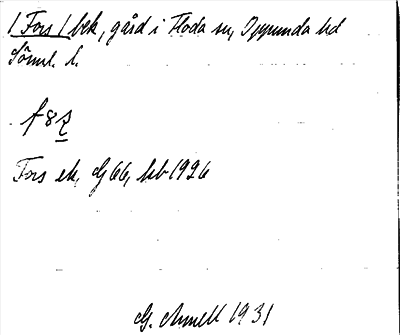 / Fors / bek, gård i Floda sn, Oppunda hd
Söml. l.
f 8 z
Fors ek, G 66, kb 1926
G. Annell 1931